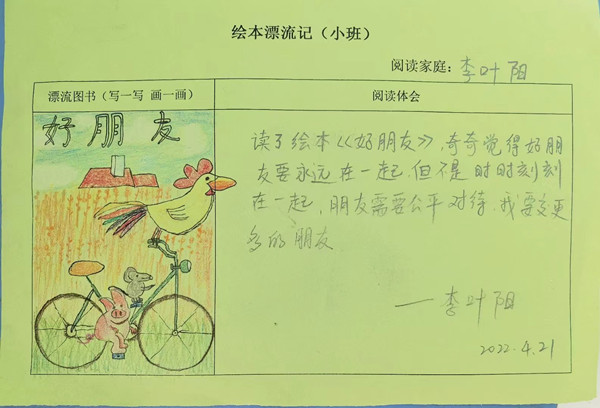 绘本漂流记（小班）
阅读家庭：李叶阳
漂流图书（写一写 画一画）
阅读体会
好朋友
读了绘本《好朋友》，奇奇觉得好朋
友要永远在一起，但不是时时刻刻
在一起，朋友需要公平对待，我要交更
多的朋友
——李叶阳
2022.4.21